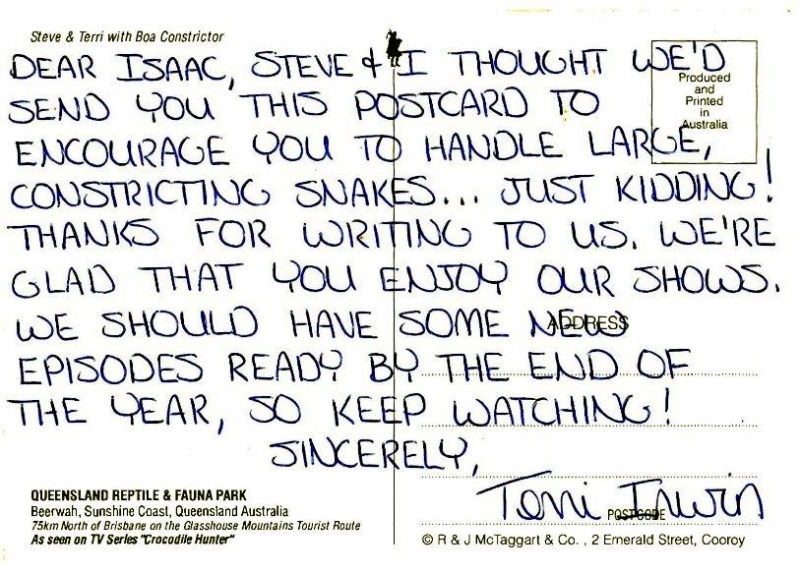 Steve & Terri with Boa Constrictor
Produced
and
Printed
in
Australia
DEAR ISAAC, STEVE & I THOUGHT WE'D
SEND YOU THIS POSTCARD TO
ENCOURAGE YOU TO HANDLE LARGE,
CONSTRICTING SNAKES... JUST KIDDING!
THANKS FOR WRITING TO US. WE'RE
GLAD THAT YOU ENJOY OUR SHOWS.
WE SHOULD HAVE SOME NEW
ADDRESS
EPISODES READY BY THE END OF
THE YEAR, SO KEEP WATCHING!
SINCERELY,
Terri Irwin
POSTCODE
QUEENSLAND REPTILE & FAUNA PARK
Beerwah, Sunshine Coast, Queensland Australia
75km North of Brisbane on the Glasshouse Mountains Tourist Route
As seen on TV Series "Crocodile Hunter"
© R & J McTaggart & Co. , 2 Emerald Street, Cooroy